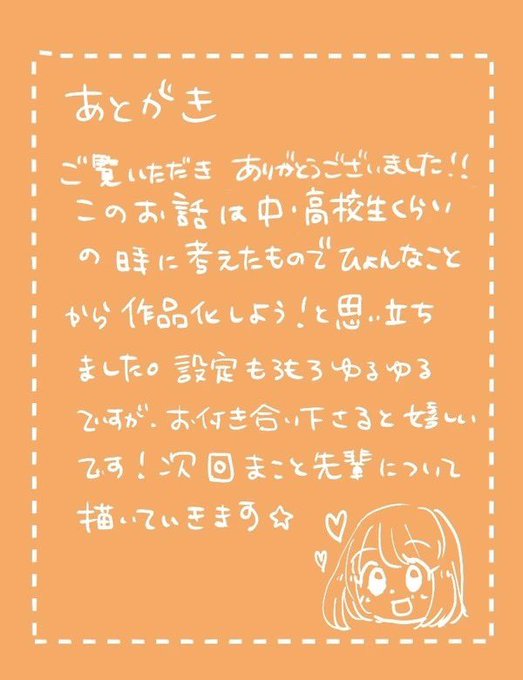 あとがき
ご覧いただき ありがとうございました!!
このお話は中・高校生くらい
の時に考えたものでひょんなこと
から作品化しよう!と思い立ち
ました。設定もろもろゆるゆる
ですが、お付き合い下さると嬉しい
です!次回まこと先輩について
描いていきます☆